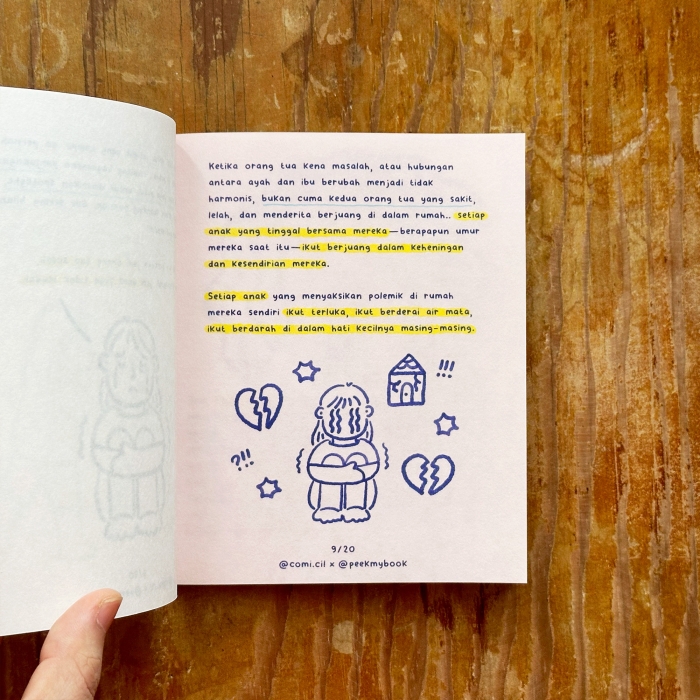 Ketika orang tua kena masalah, atau hubungan
antara ayah dan ibu berubah menjadi tidak
harmonis, bukan cuma kedua orang tua yang sakit,
lelah, dan menderita berjuang di dalam rumah.. setiap
anak yang tinggal bersama mereka—berapapun umur
mereka saat itu—ikut berjuang dalam keheningan
dan kesendirian mereka.
Setiap anak yang menyaksikan polemik di rumah
mereka sendiri ikut terluka, ikut berderai air mata,
ikut berdarah di dalam hati kecilnya masing-masing.
!!!
?!!
9/20
@comi.cil x @peekmybook